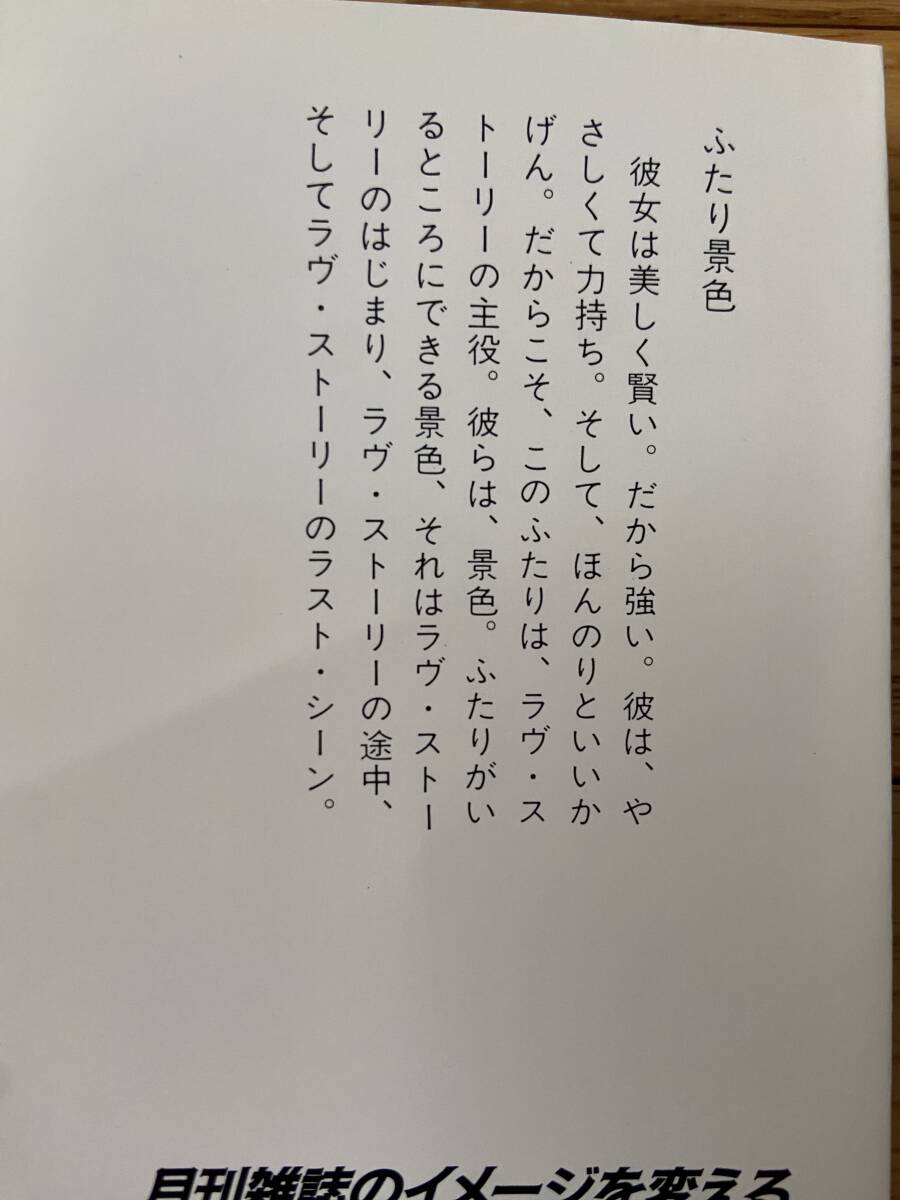 ふたり景色
彼女は美しく賢い。だから強い。彼は、や
さしくて力持ち。そして、ほんのりといいか
げん。だからこそ、このふたりは、ラヴ・ス
トーリーの主役。彼らは、景色。ふたりがい
るところにできる景色、それはラヴ・ストー
リーのはじまり、ラヴ・ストーリーの途中、
そしてラヴ・ストーリーのラスト・シーン。
月刊雑誌のイメージを変える